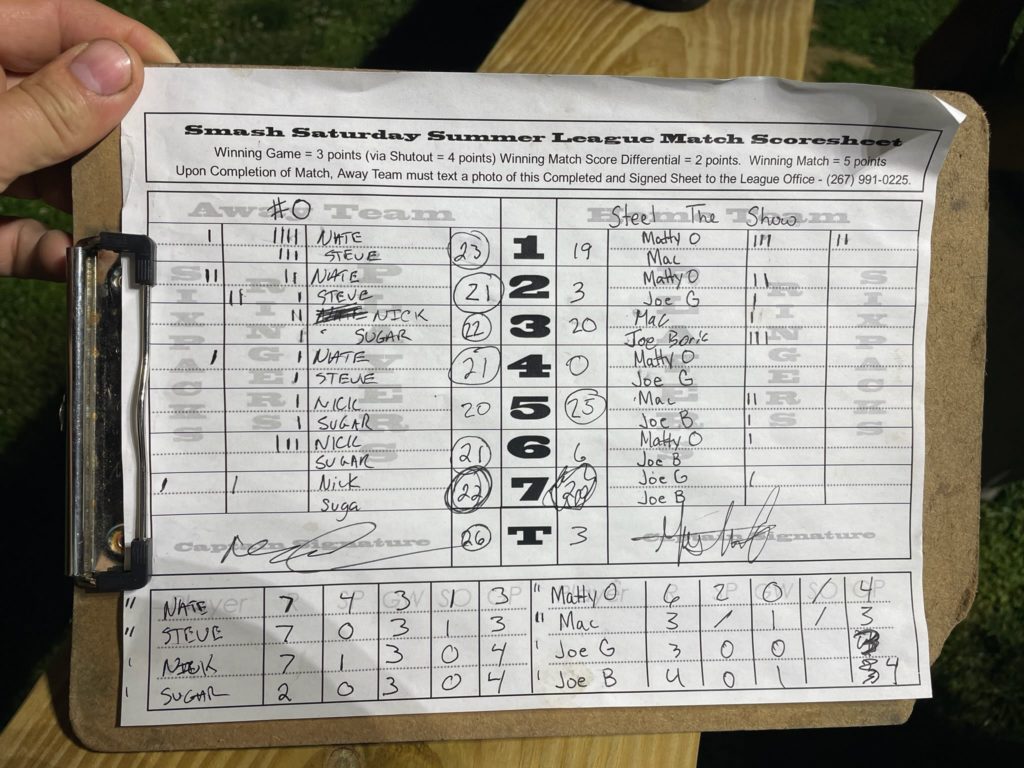 Smash Saturday Summer League Match Scoresheet
Winning Game = 3 points (via Shutout = 4 points) Winning Match Score Differential = 2 points. Winning Match = 5 points
Upon Completion of Match, Away Team must text a photo of this Completed and Signed Sheet to the League Office - (267) 991-0225.
Away Team #0 Home Team Steel The Show
I IIII NATE 23 1 19 Matty O III II
III STEVE Mac
II II NATE 21 2 3 Matty O II
II I STEVE Joe G I
II NICK 22 3 20 Mac I
I SUGAR Joe Boric III
I NATE 21 4 0 Matty O
I STEVE Joe G
I NICK 20 5 25 Mac II
I SUGAR Joe B I
III NICK 21 6 6 Matty O I
SUGAR Joe B
I I Nick 22 7 20 Joe G I
Suga Joe B
SIXPACKS RINGERS PLAYERS PLAYERS RINGERS SIXPACKS
Captain Signature 26 T 3 Captain Signature
Player R SP GW SO GP Player R SP GW SO GP
" NATE 7 4 3 1 3 " Matty O 6 2 0 / 4
" STEVE 7 0 3 1 3 " Mac 3 / 1 / 3
' NICK 7 1 3 0 4 ' Joe G 3 0 0 3
' SUGAR 2 0 3 0 4 ' Joe B 4 0 1 4